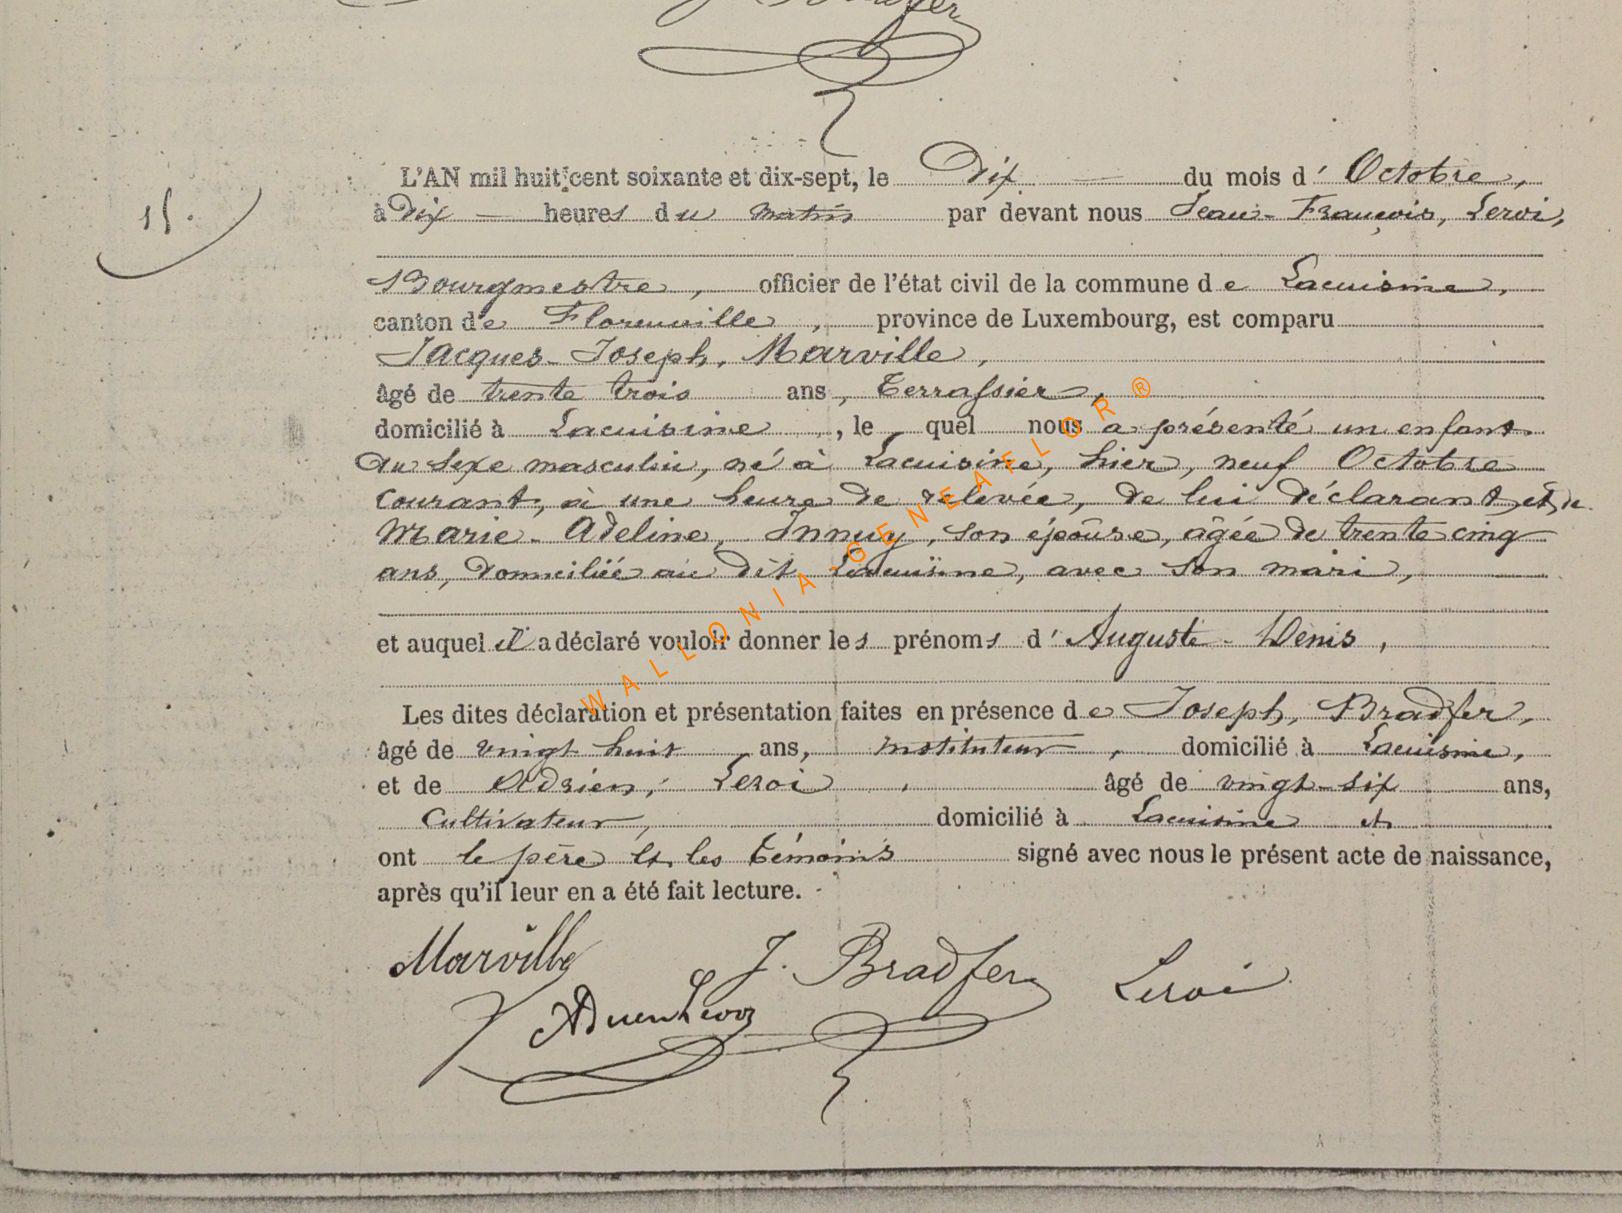 Bradfer
15.
L'AN mil huit cent soixante et dix-sept, le Dix du mois d' Octobre,
à Dix heures du matin par devant nous Jean-François, Leroi,
Bourgmestre, officier de l'état civil de la commune de Lacuisine,
canton de Florenville, province de Luxembourg, est comparu
Jacques-Joseph, Marville,
âgé de trente trois ans, Terrassier,
domicilié à Lacuisine, le quel nous a présenté un enfant
du Sexe masculin, né à Lacuisine, hier, neuf Octobre
courant, à une heure de relevée, de lui déclarant et de
Marie-Adeline, Innuy, son épouse, âgée de trente cinq
ans, domiciliée au dit Lacuisine, avec son mari,
et auquel il a déclaré vouloir donner les prénoms d' Auguste-Denis,
Les dites déclaration et présentation faites en présence de Joseph, Bradfer,
âgé de vingt huit ans, instituteur, domicilié à Lacuisine,
et de Adrien, Leroi, âgé de vingt-six ans,
Cultivateur, domicilié à Lacuisine et
ont le père et les témoins signé avec nous le présent acte de naissance,
après qu'il leur en a été fait lecture.
Marville J. Bradfer Leroi
WALLONIA-GENEAFLOR®